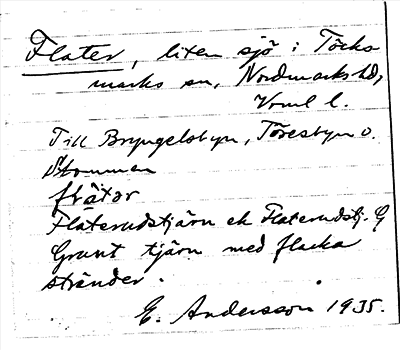 Flater, liten sjö i Töcks
marks sn, Nordmarks hd,
Vrml l.
Till Bryngelsbyn, Töresbyn o.
Stommen
flätar
Flaterudstjärn ek Flaterudstj. G
Grunt tjärn med flacka
stränder.
E. Andersson 1935.